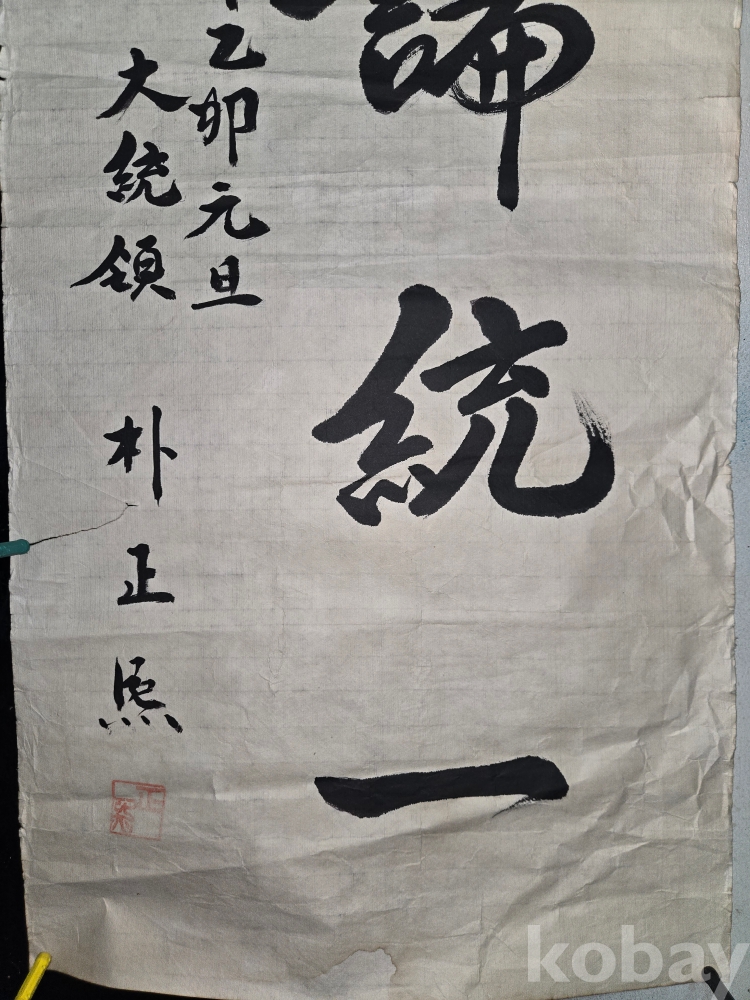 論統一
乙卯元旦
大統領 朴正熙
kobay